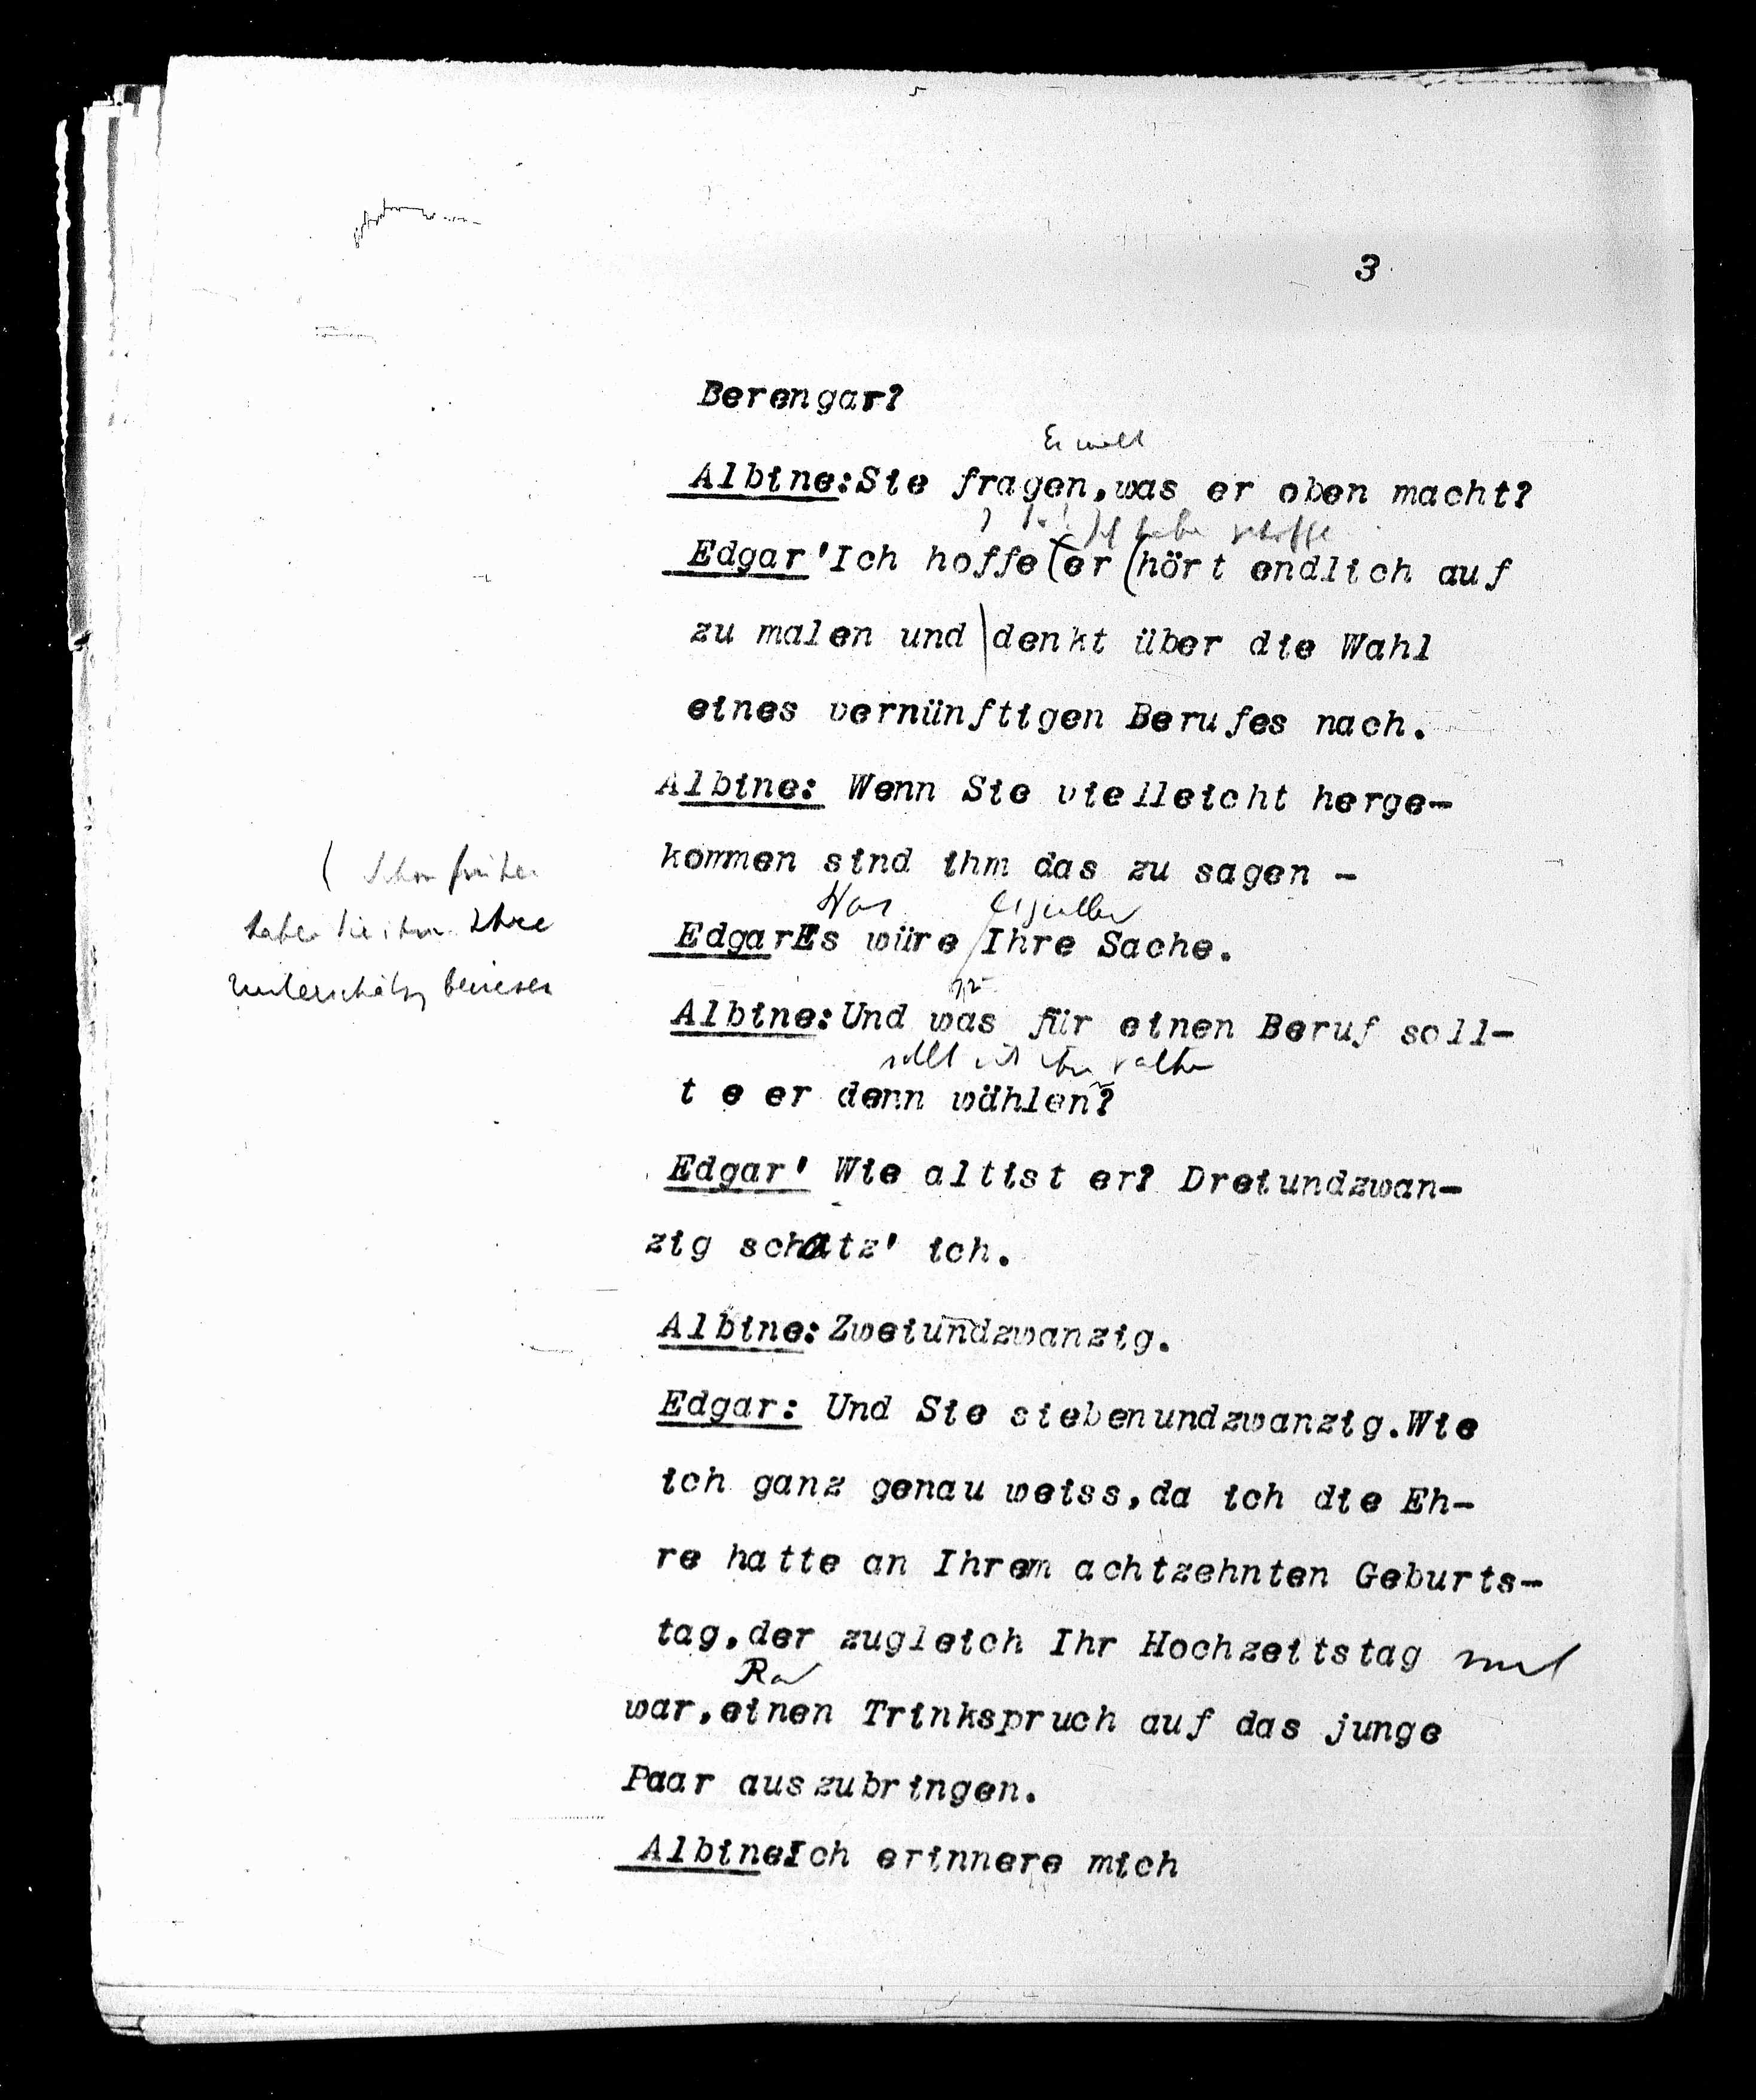 3
Berengar?
Albine:Sie fragen,was er oben macht?
Edgar'Ich hoffe(er (hört endlich auf
zu malen und denkt über die Wahl
eines vernünftigen Berufes nach.
Albine: Wenn Sie vielleicht herge-
kommen sind ihm das zu sagen -
War
EdgarEs wäre Ihre Sache.
( Schon früher
haben Sie ihm Ihre
Albine:Und was für einen Beruf soll-
t e er denn wählen?
Edgar' Wie altist er? Dreiundzwan-
zig schatz' ich.
Albine:Zweiundzwanzig.
Edgar: Und Sie siebenundzwanzig.Wie
ich ganz genau weiss,da ich die Eh-
re hatte an Ihrem achtzehnten Geburts-
tag,der zugleich Ihr Hochzeitstag
war,einen Trinkspruch auf das junge
Paar auszubringen.
AlbineIch erinnere mich